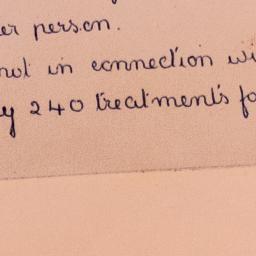 er person.
not in connection wi
y 240 treatments fo